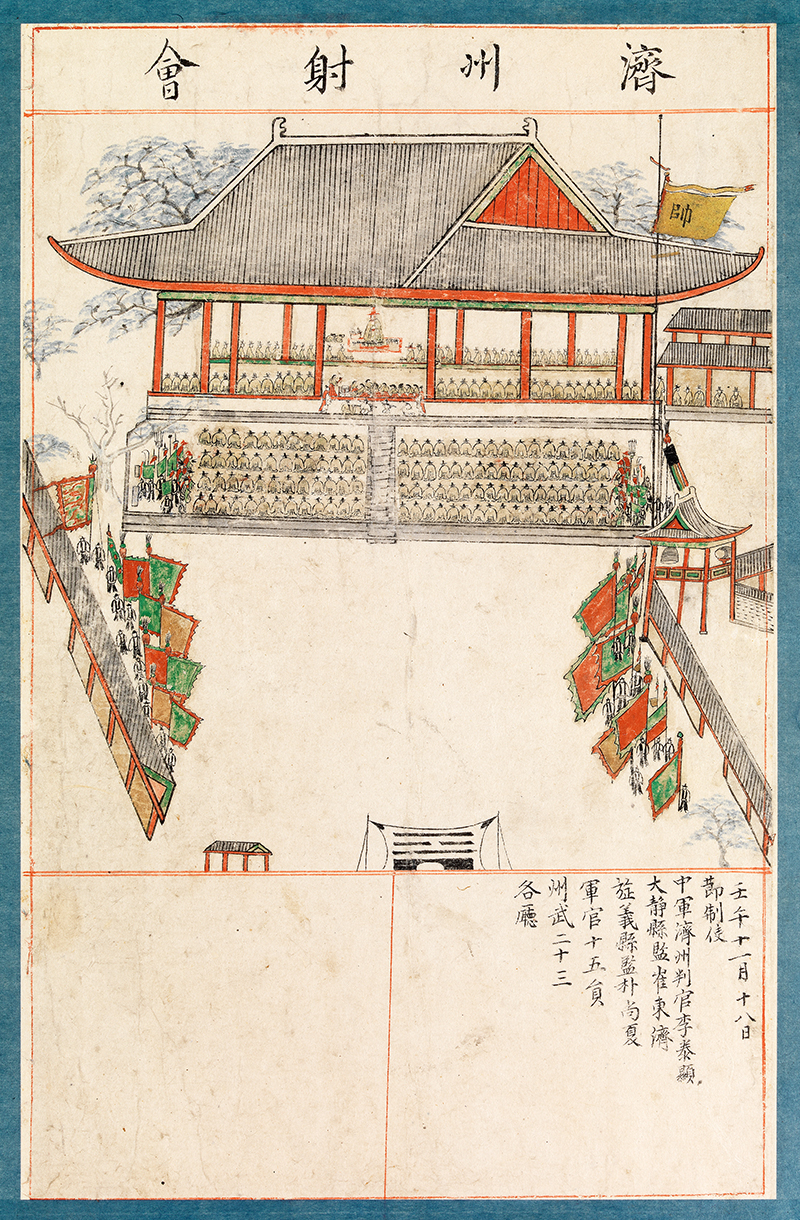 濟州射會
帥
壬午十一月十八日
節制使
中軍濟州判官李泰顯
大静縣監崔東濟
旌義縣監朴尚夏
軍官十五員
州武二十三
各廳